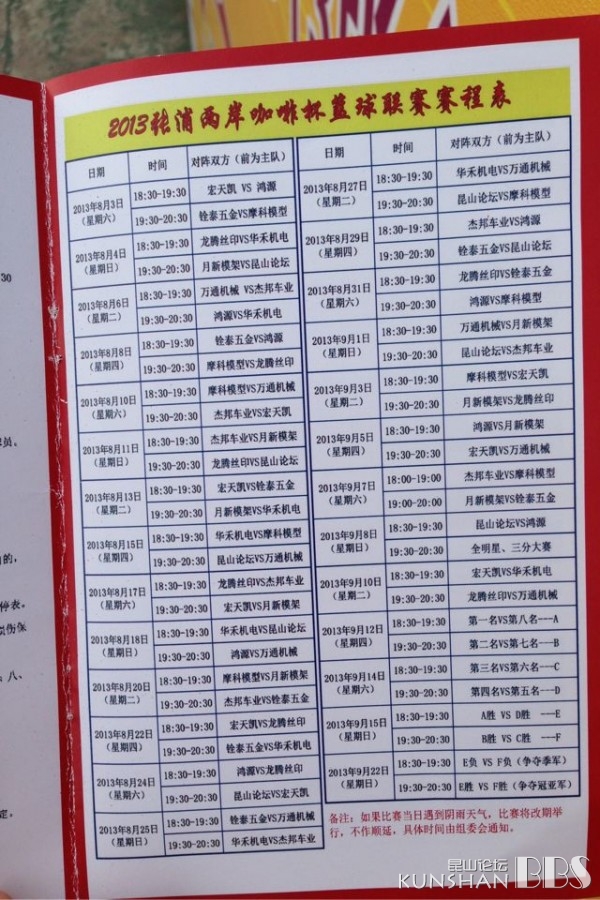 2013张浦两岸咖啡杯篮球联赛赛程表
日期 时间 对阵双方（前为主队）
2013年8月3日（星期六） 18:30-19:30 宏天凯 VS 鸿源
19:30-20:30 铨泰五金VS摩科模型
2013年8月4日（星期日） 18:30-19:30 龙腾丝印VS华禾机电
19:30-20:30 月新模架VS昆山论坛
2013年8月6日（星期二） 18:30-19:30 万通机械 VS杰邦车业
19:30-20:30 鸿源VS华禾机电
2013年8月8日（星期四） 18:30-19:30 铨泰五金VS鸿源
19:30-20:30 摩科模型VS龙腾丝印
2013年8月10日（星期六） 18:30-19:30 摩科模型VS万通机械
19:30-20:30 杰邦车业VS宏天凯
2013年8月11日（星期日） 18:30-19:30 杰邦车业VS月新模架
19:30-20:30 龙腾丝印VS昆山论坛
2013年8月13日（星期二） 18:30-19:30 宏天凯VS铨泰五金
19:30-20:30 月新模架VS华禾机电
2013年8月15日（星期四） 18:30-19:30 华禾机电VS摩科模型
19:30-20:30 昆山论坛VS万通机械
2013年8月17日（星期六） 18:30-19:30 龙腾丝印VS杰邦车业
19:30-20:30 宏天凯VS月新模架
2013年8月18日（星期日） 18:30-19:30 华禾机电VS昆山论坛
19:30-20:30 鸿源VS万通机械
2013年8月20日（星期二） 18:30-19:30 摩科模型VS月新模架
19:30-20:30 杰邦车业VS铨泰五金
2013年8月22日（星期四） 18:30-19:30 宏天凯VS龙腾丝印
19:30-20:30 铨泰五金VS华禾机电
2013年8月24日（星期六） 18:30-19:30 鸿源VS龙腾丝印
19:30-20:30 昆山论坛VS宏天凯
2013年8月25日（星期日） 18:30-19:30 铨泰五金VS万通机械
19:30-20:30 华禾机电VS杰邦车业
日期 时间 对阵双方（前为主队）
2013年8月27日（星期二） 18:30-19:30 华禾机电VS万通机械
19:30-20:30 昆山论坛VS摩科模型
2013年8月29日（星期四） 18:30-19:30 杰邦车业VS鸿源
19:30-20:30 铨泰五金VS昆山论坛
2013年8月31日（星期六） 18:30-19:30 龙腾丝印VS铨泰五金
19:30-20:30 鸿源VS摩科模型
2013年9月1日（星期日） 18:30-19:30 万通机械VS月新模架
19:30-20:30 昆山论坛VS杰邦车业
2013年9月3日（星期二） 18:30-19:30 摩科模型VS宏天凯
19:30-20:30 月新模架VS龙腾丝印
2013年9月5日（星期四） 18:30-19:30 鸿源VS月新模架
19:30-20:30 宏天凯VS万通机械
2013年9月7日（星期六） 18:00-19:00 杰邦车业VS摩科模型
19:00-20:00 月新模架VS铨泰五金
2013年9月8日（星期日） 18:30-19:30 昆山论坛VS鸿源
19:30-20:30 全明星、三分大赛
2013年9月10日（星期二） 18:30-19:30 宏天凯VS华禾机电
19:30-20:30 龙腾丝印VS万通机械
2013年9月12日（星期四） 18:30-19:30 第一名VS第八名---A
19:30-20:30 第二名VS第七名---B
2013年9月14日（星期六） 18:30-19:30 第三名VS第六名---C
19:30-20:30 第四名VS第五名---D
2013年9月15日（星期日） 18:30-19:30 A胜 VS D胜 ---E
19:30-20:30 B胜 VS C胜 ---F
2013年9月22日（星期日） 18:30-19:30 E负 VS F负（争夺季军）
19:30-20:30 E胜 VS F胜（争夺冠亚军）
备注：如果比赛当日遇到阴雨天气，比赛将改期举
行，不作顺延，具体时间由组委会通知。
30
球员。
的，
停表。
员伤保
：八、
定。
昆山论坛
KUNSHAN BBS